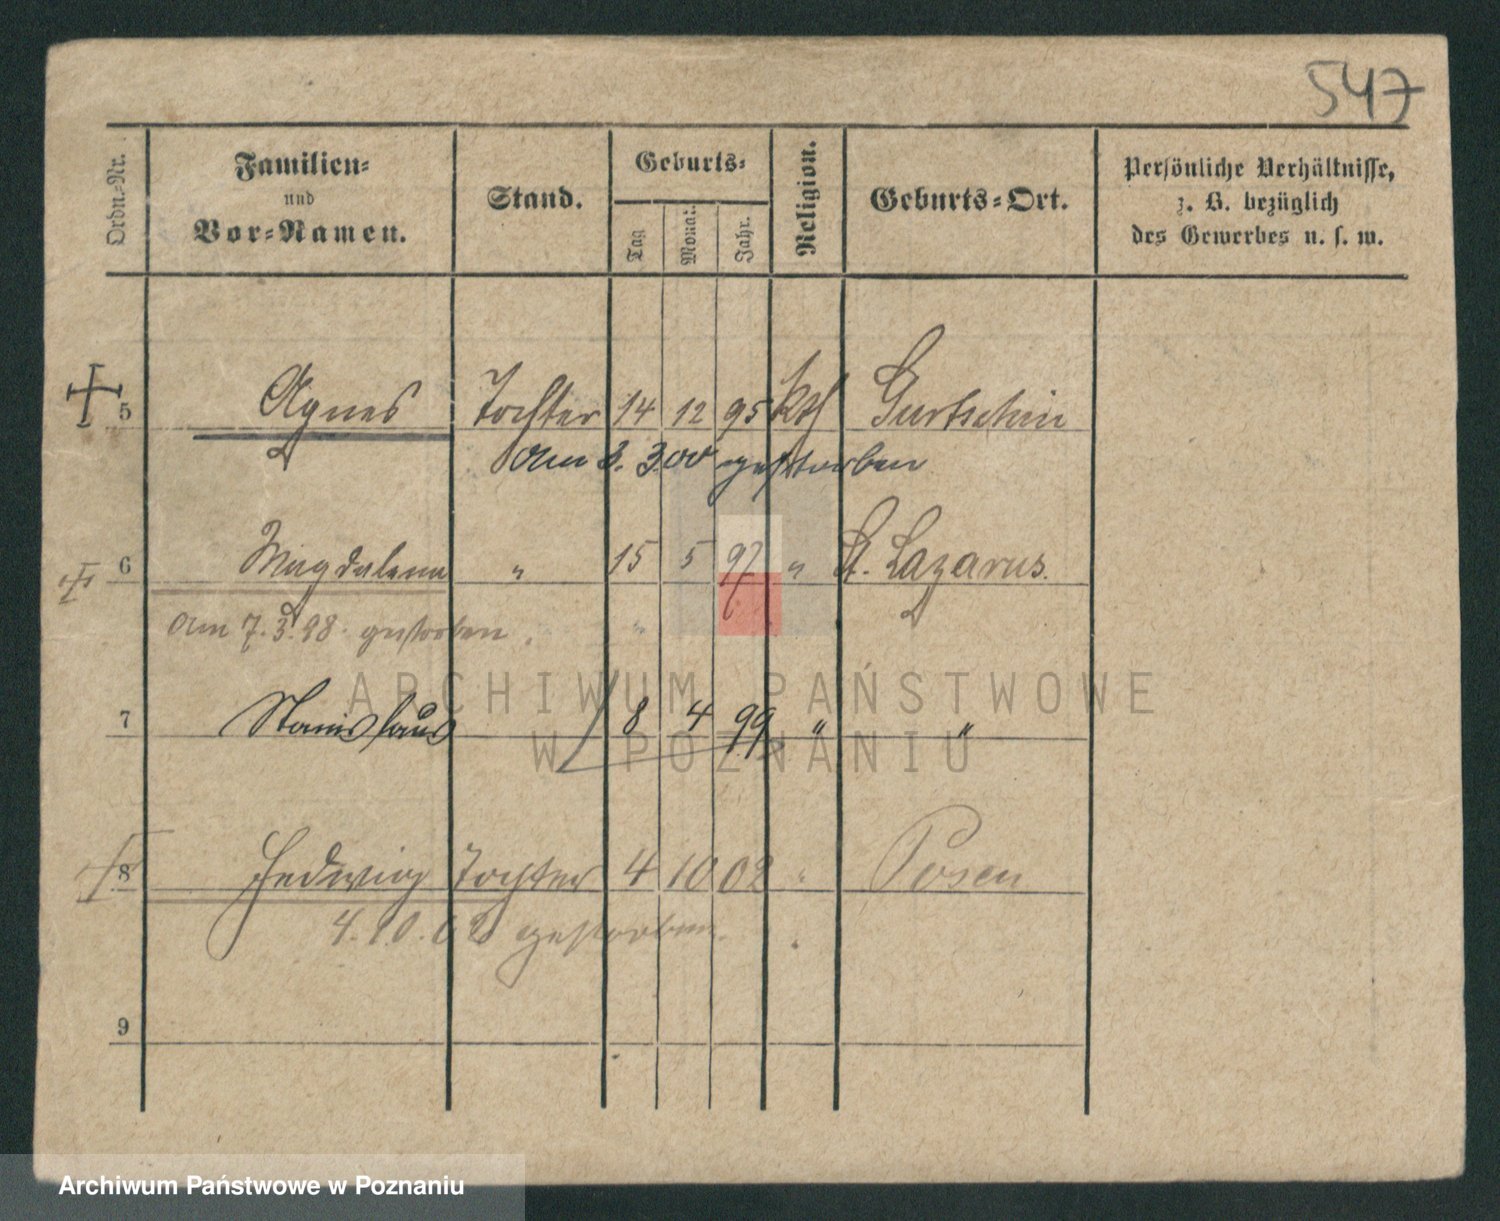 547
Ordn.-Nr.
Familien-
und
Vor-Namen.
Stand.
Geburts-
Tag
Monat.
Jahr.
Religion.
Geburts-Ort.
Persönliche Verhältnisse,
z. B. bezüglich
des Gewerbes u. s. w.
5 Agnes Tochter 14 12 95 Kth Gurtschin
Am 3. 3.00 gestorben
6 Magdalena " 15 5 97 " St. Lazarus.
Am 7.3.98. gestorben.
7 Stanislaus 8 4 99 " "
8 Hedwig Tochter 4 10 02 " Posen
4.10.02 gestorben.
9
ARCHIWUM PAŃSTWOWE
W POZNANIU
Archiwum Państwowe w Poznaniu